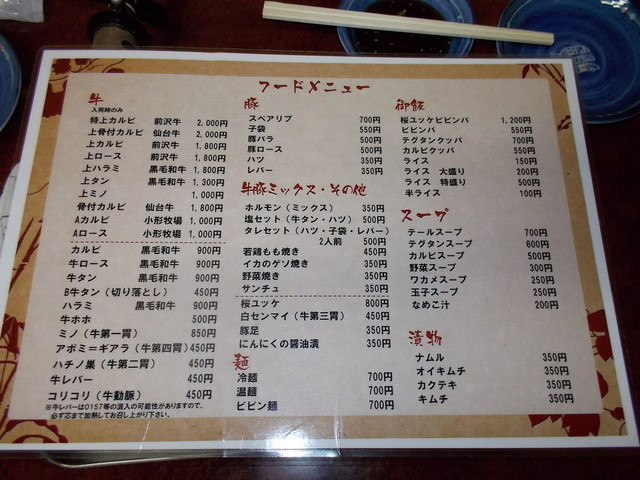 フードメニュー
牛
入荷時のみ
特上カルビ 前沢牛 2,000円
上骨付カルビ 仙台牛 2,000円
上カルビ 前沢牛 1,800円
上ロース 前沢牛 1,800円
上ハラミ 黒毛和牛 1,800円
上タン 黒毛和牛 1,300円
上ミノ 1,000円
骨付カルビ 仙台牛 1,000円
Aカルビ 小形牧場 1,000円
Aロース 小形牧場 1,000円
カルビ 黒毛和牛 900円
牛ロース 黒毛和牛 900円
牛タン 黒毛和牛 900円
B牛タン（切り落とし） 450円
ハラミ 黒毛和牛 900円
牛ホホ 500円
ミノ（牛第一胃） 850円
アボミ＝ギアラ（牛第四胃）450円
ハチノ巣（牛第二胃） 450円
牛レバー 450円
コリコリ（牛動脈） 450円
※牛レバーはO157等の混入の可能性がありますので、
必ず芯まで加熱してお召し上がり下さい。
豚
スペアリブ 700円
子袋 550円
豚バラ 500円
豚ロース 500円
ハツ 350円
レバー 350円
牛豚ミックス・その他
ホルモン（ミックス） 350円
塩セット（牛タン・ハツ） 500円
タレセット（ハツ・子袋・レバー）
2人前 500円
若鶏もも焼き 450円
イカのゲソ焼き 350円
野菜焼き 350円
サンチュ 350円
桜ユッケ 800円
白センマイ（牛第三胃） 450円
豚足 350円
にんにくの醤油漬 350円
麺
冷麺 700円
温麺 700円
ビビン麺 700円
御飯
桜ユッケビビンバ 1,200円
ビビンバ 550円
テグタンクッパ 700円
カルビクッパ 550円
ライス 150円
ライス 大盛り 200円
ライス 特盛り 500円
半ライス 100円
スープ
テールスープ 700円
テグタンスープ 600円
カルビスープ 500円
野菜スープ 300円
ワカメスープ 250円
玉子スープ 250円
なめこ汁 200円
漬物
ナムル 350円
オイキムチ 350円
カクテキ 350円
キムチ 350円